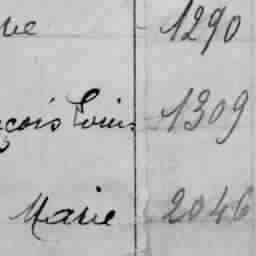 1290
çois Louis 1309
Marie 2046